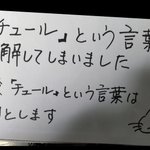 チュール』という言葉
解してしまいました
『チュール』という言葉は
とします